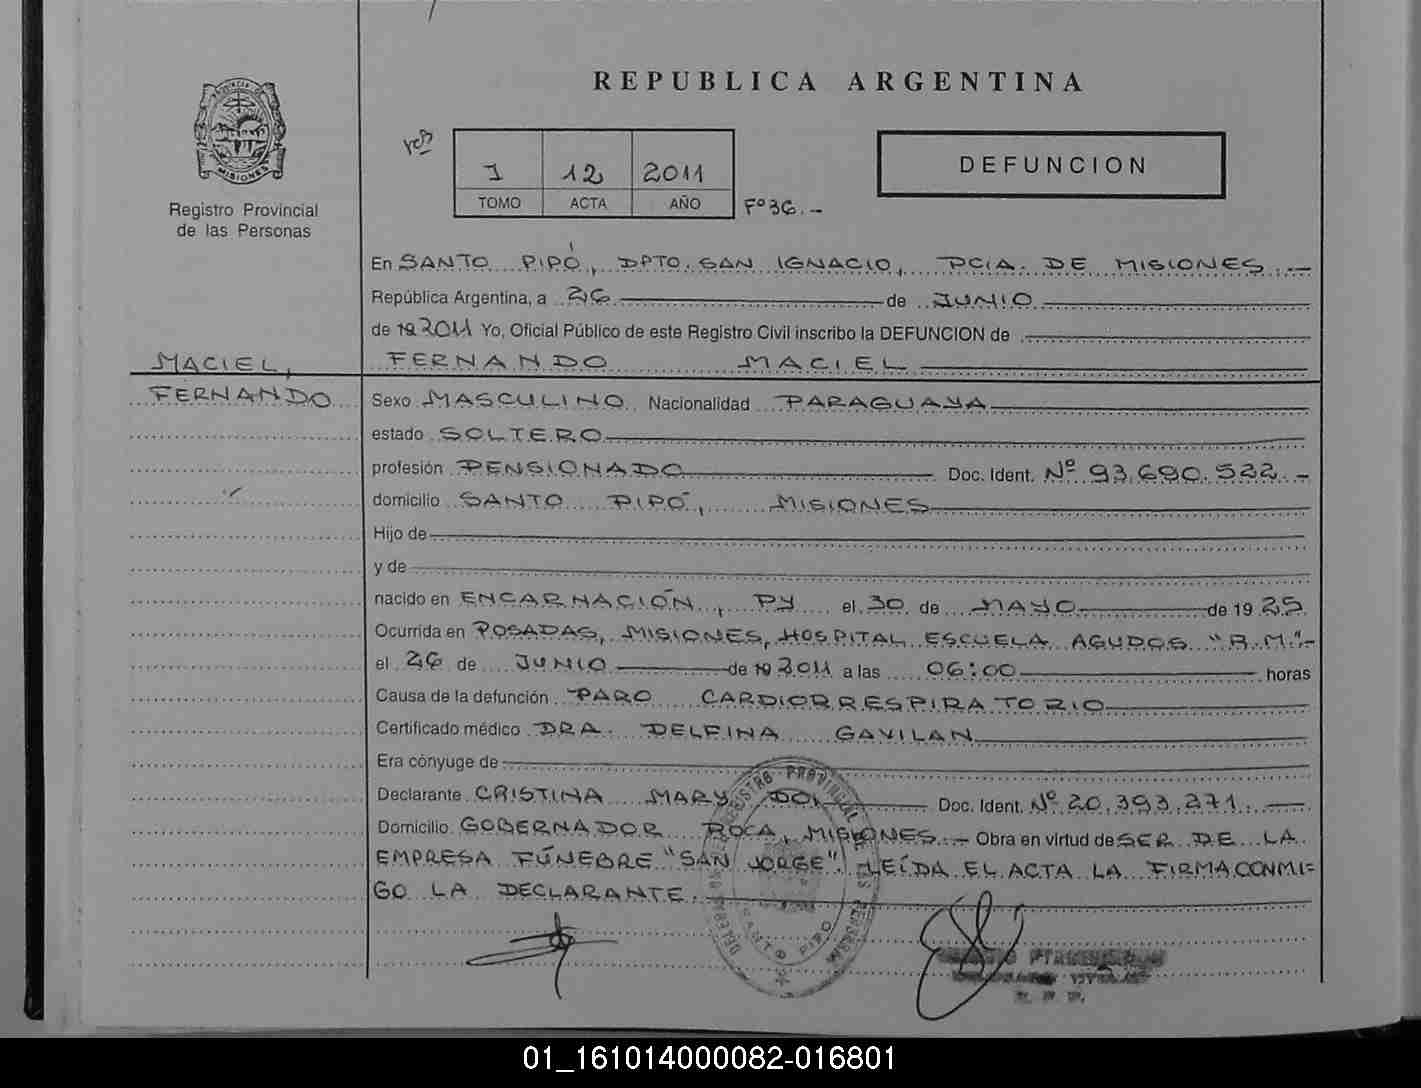 REPUBLICA ARGENTINA
PROVINCIA DE
MISIONES
Registro Provincial
de las Personas
I 12 2011
TOMO ACTA AÑO Fº36.-
DEFUNCION
En SANTO PIPÓ, DPTO. SAN IGNACIO, PCIA. DE MISIONES.-
República Argentina, a 26 de JUNIO
de 19 2011 Yo, Oficial Público de este Registro Civil inscribo la DEFUNCION de
MACIEL, FERNANDO MACIEL
FERNANDO Sexo MASCULINO Nacionalidad PARAGUAYA
estado SOLTERO
profesión PENSIONADO Doc. Ident. Nº 93.690.522.-
domicilio SANTO PIPÓ, MISIONES
Hijo de
y de
nacido en ENCARNACIÓN, PY el 30 de MAYO de 19 25
Ocurrida en POSADAS, MISIONES, HOSPITAL ESCUELA AGUDOS "R.M."-
el 26 de JUNIO de 19 2011 a las 06:00 horas
Causa de la defunción PARO CARDIORRESPIRATORIO
Certificado médico DRA. DELFINA GAVILAN
Era cónyuge de
Declarante CRISTINA MARY Doc. Ident. Nº 20.393.271.
Domicilio GOBERNADOR ROCA, MISIONES.- Obra en virtud de SER DE LA
EMPRESA FÚNEBRE "SAN JORGE". LEÍDA EL ACTA LA FIRMA CONMI=
GO LA DECLARANTE.
REGISTRO PROVINCIAL DE LAS PERSONAS
SANTO PIPO
01_161014000082-016801